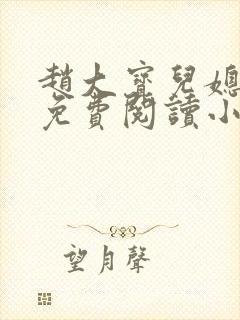 趙大寶兒媳
免費閱讀小
望月聲